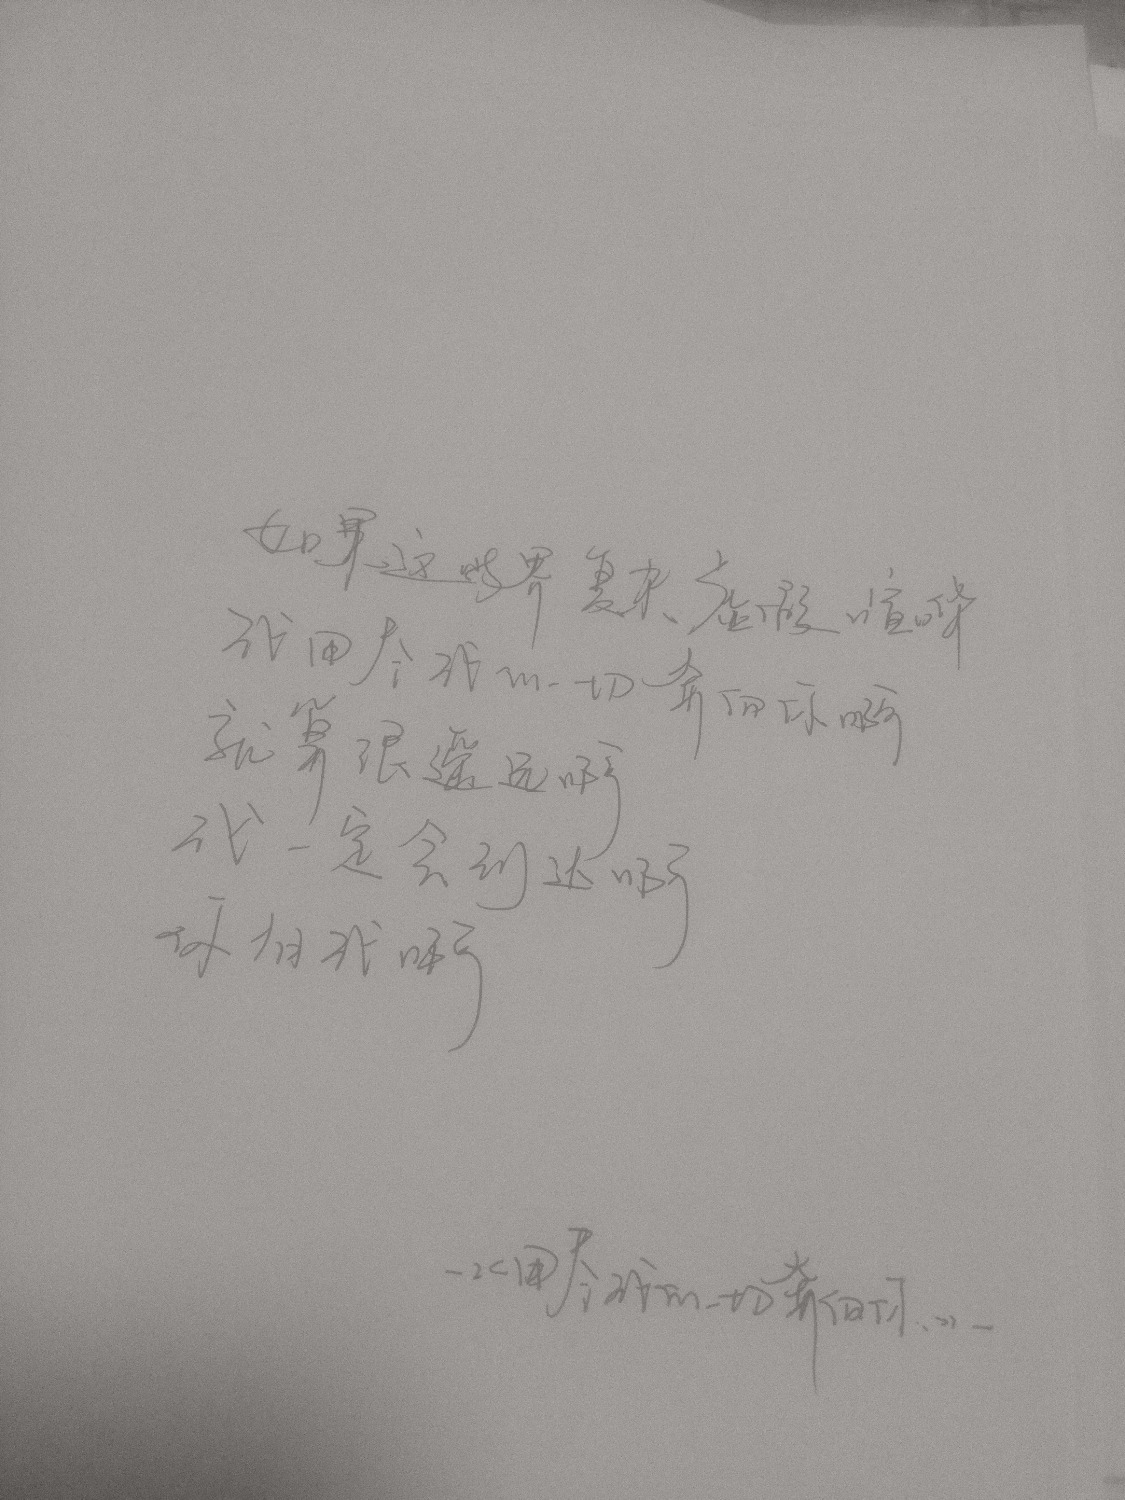 如果这世界复杂、虚假、喧哗
我用尽我的一切奔向你啊
就算很遥远啊
我一定会到达啊
你相信我啊
—《用尽我的一切奔向你》—